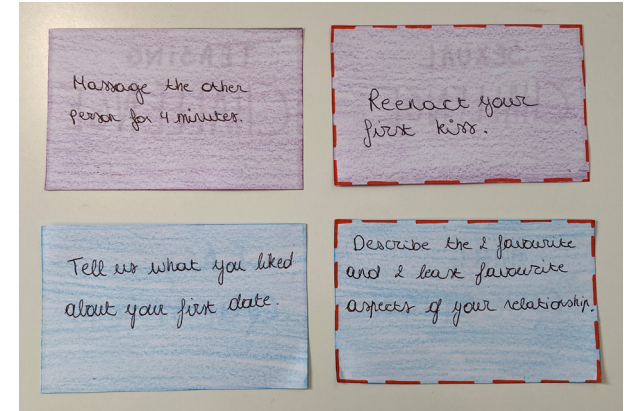 Massage the other
person for 4 minutes.
Reenact your
first kiss.
Tell us what you liked
about your first date.
Describe the 2 favourite
and 2 least favourite
aspects of your relationship.